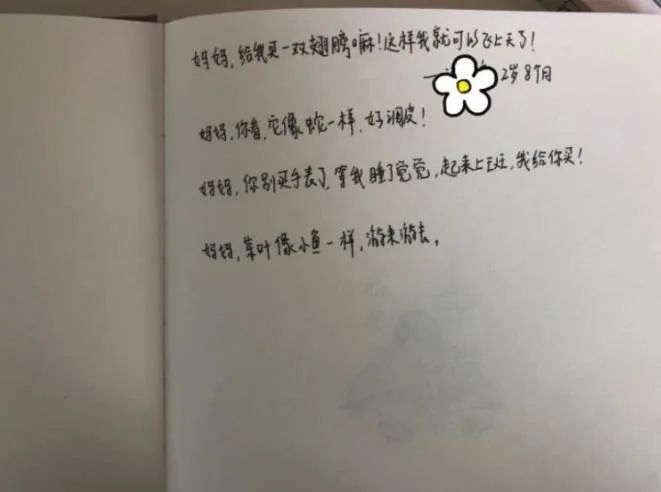 妈妈,给我买一双翅膀嘛!这样我就可以飞上天了!
2岁8个月
妈妈,你看,它像蛇一样,好调皮!
妈妈,你别买手表了,等我睡了觉觉,起来上班,我给你买!
妈妈,茶叶像小鱼一样,游来游去。